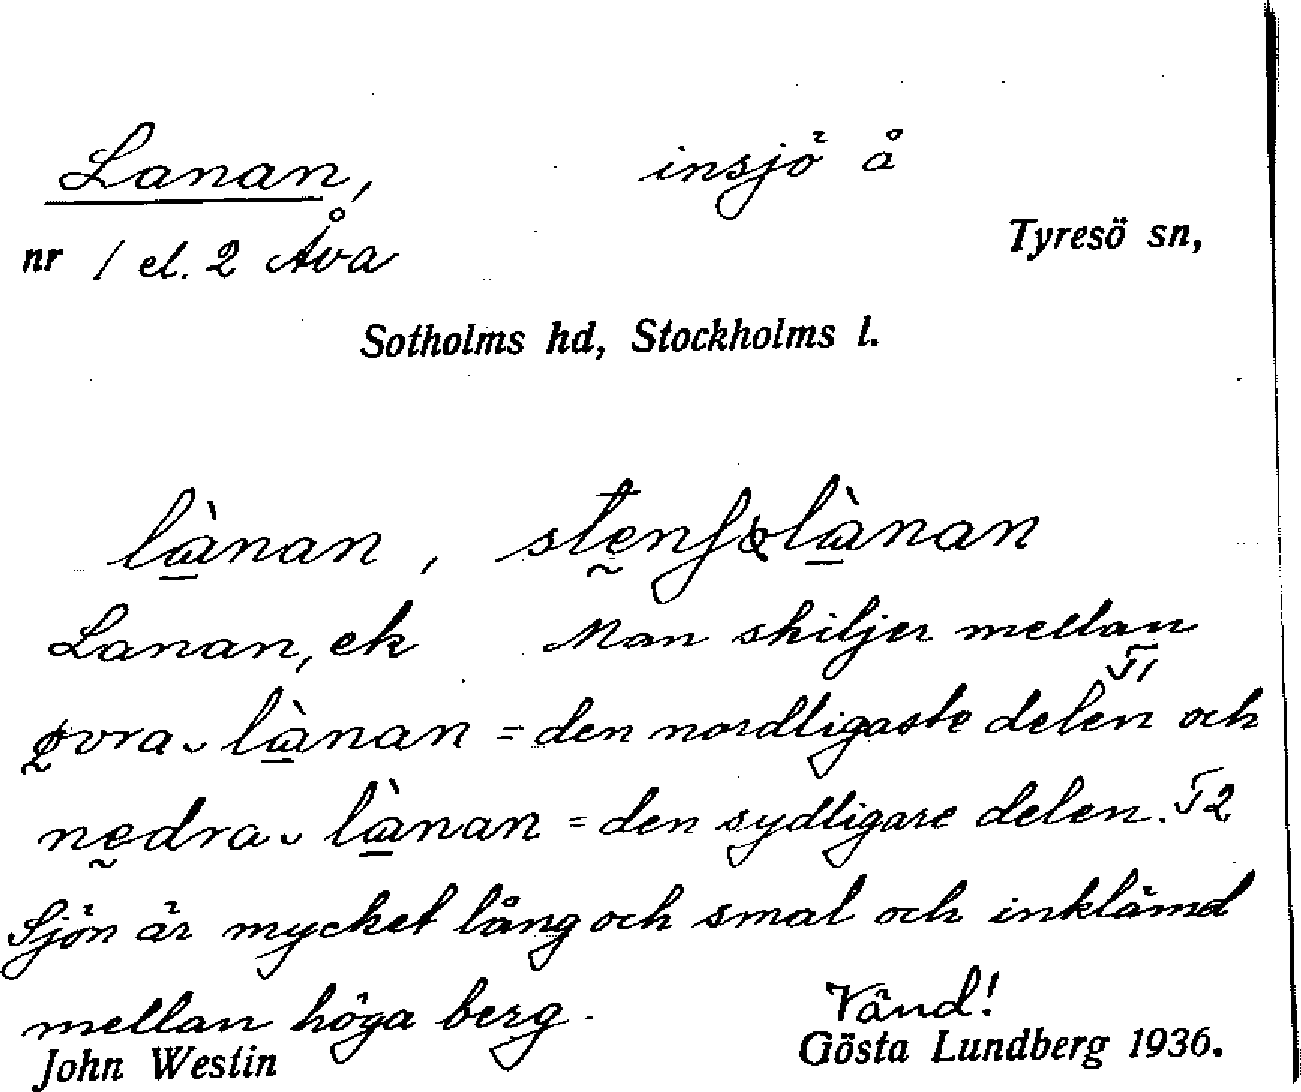 Lanan, insjö å
nr 1 el. 2 Åva Tyresö sn,
Sotholms hd, Stockholms l.
lànan, stenslànan
Lanan, ek Man skiljer mellan
övra lànan = den nordligaste delen T1 och
nedra lànan = den sydligare delen. T2
Sjön är mycket lång och smal och inklämd
mellan höga berg. Vänd!
John Westin Gösta Lundberg 1936.